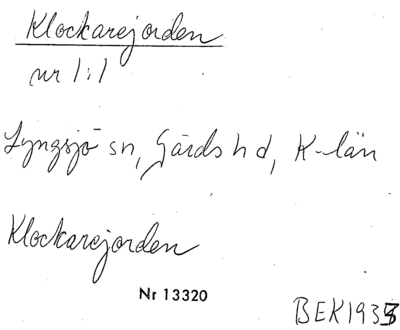 Klockarejorden
nr 1:1
Lyngsjö sn, Gärds hd, K-län
Klockarejorden
Nr 13320